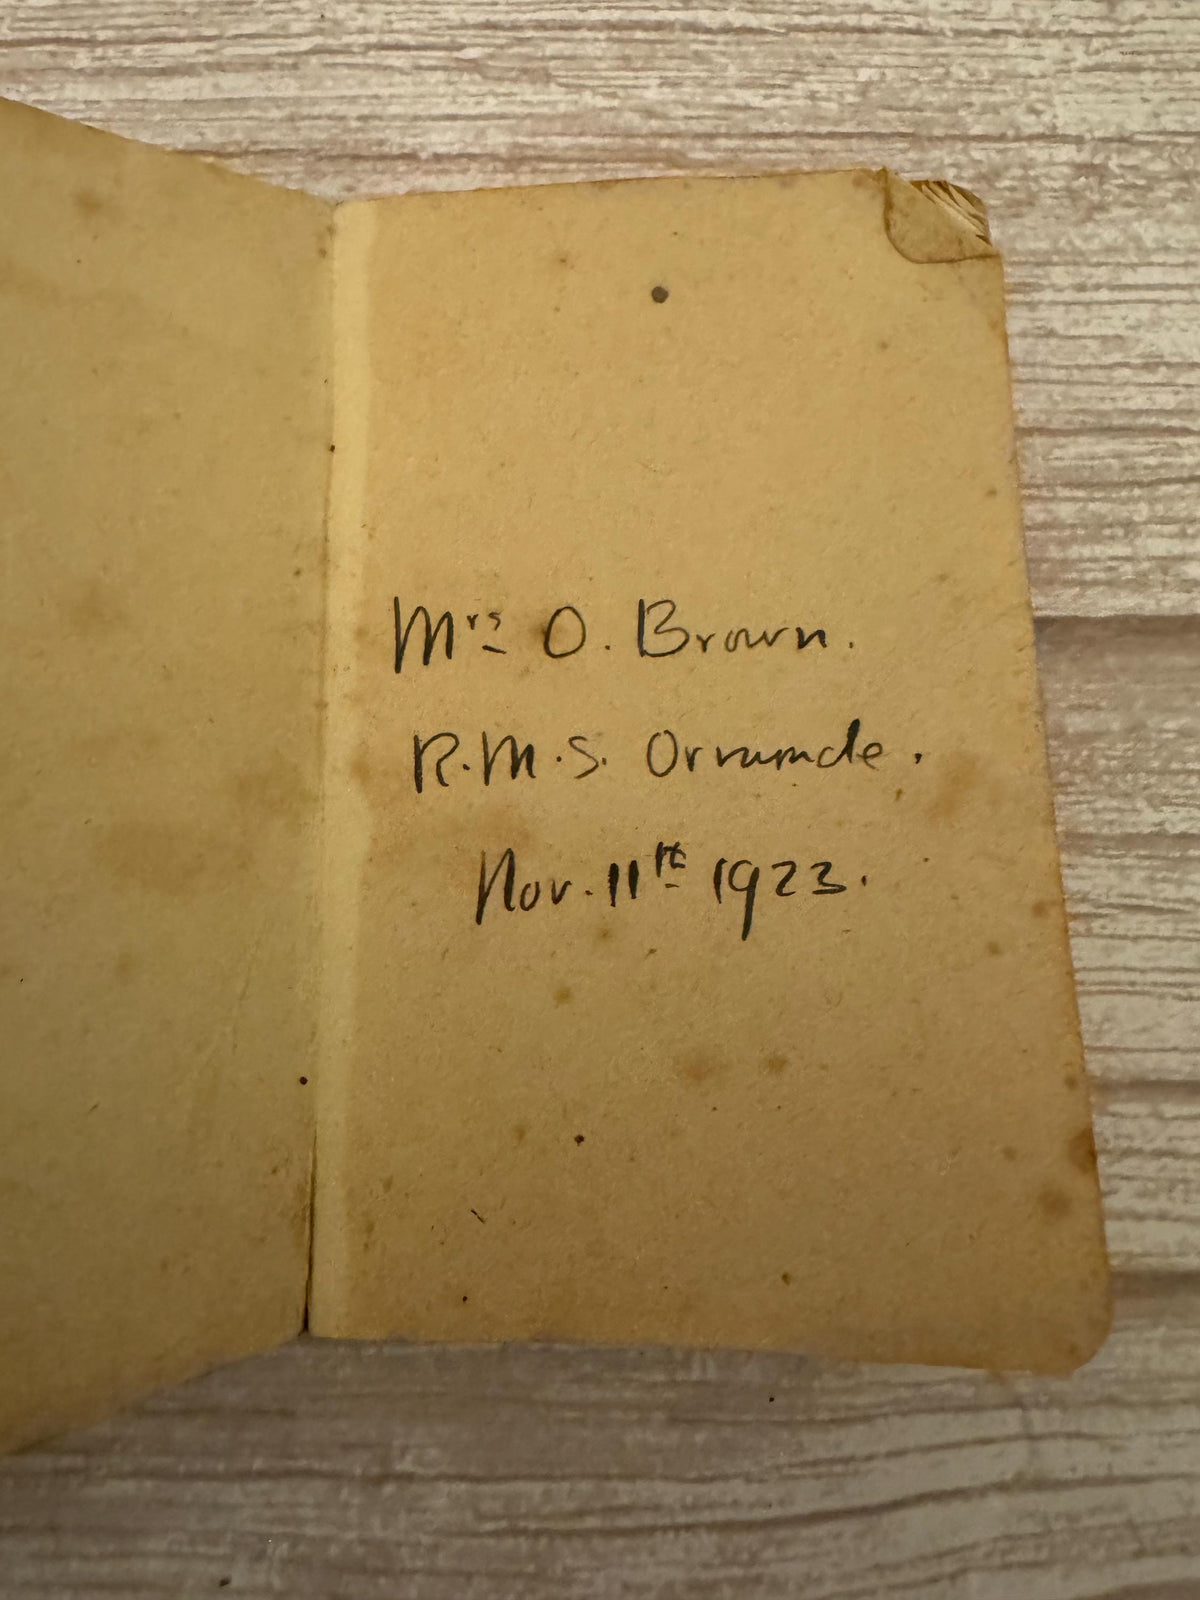 Mrs O. Brown.
R.M.S. Ormonde.
Nov. 11th 1923.